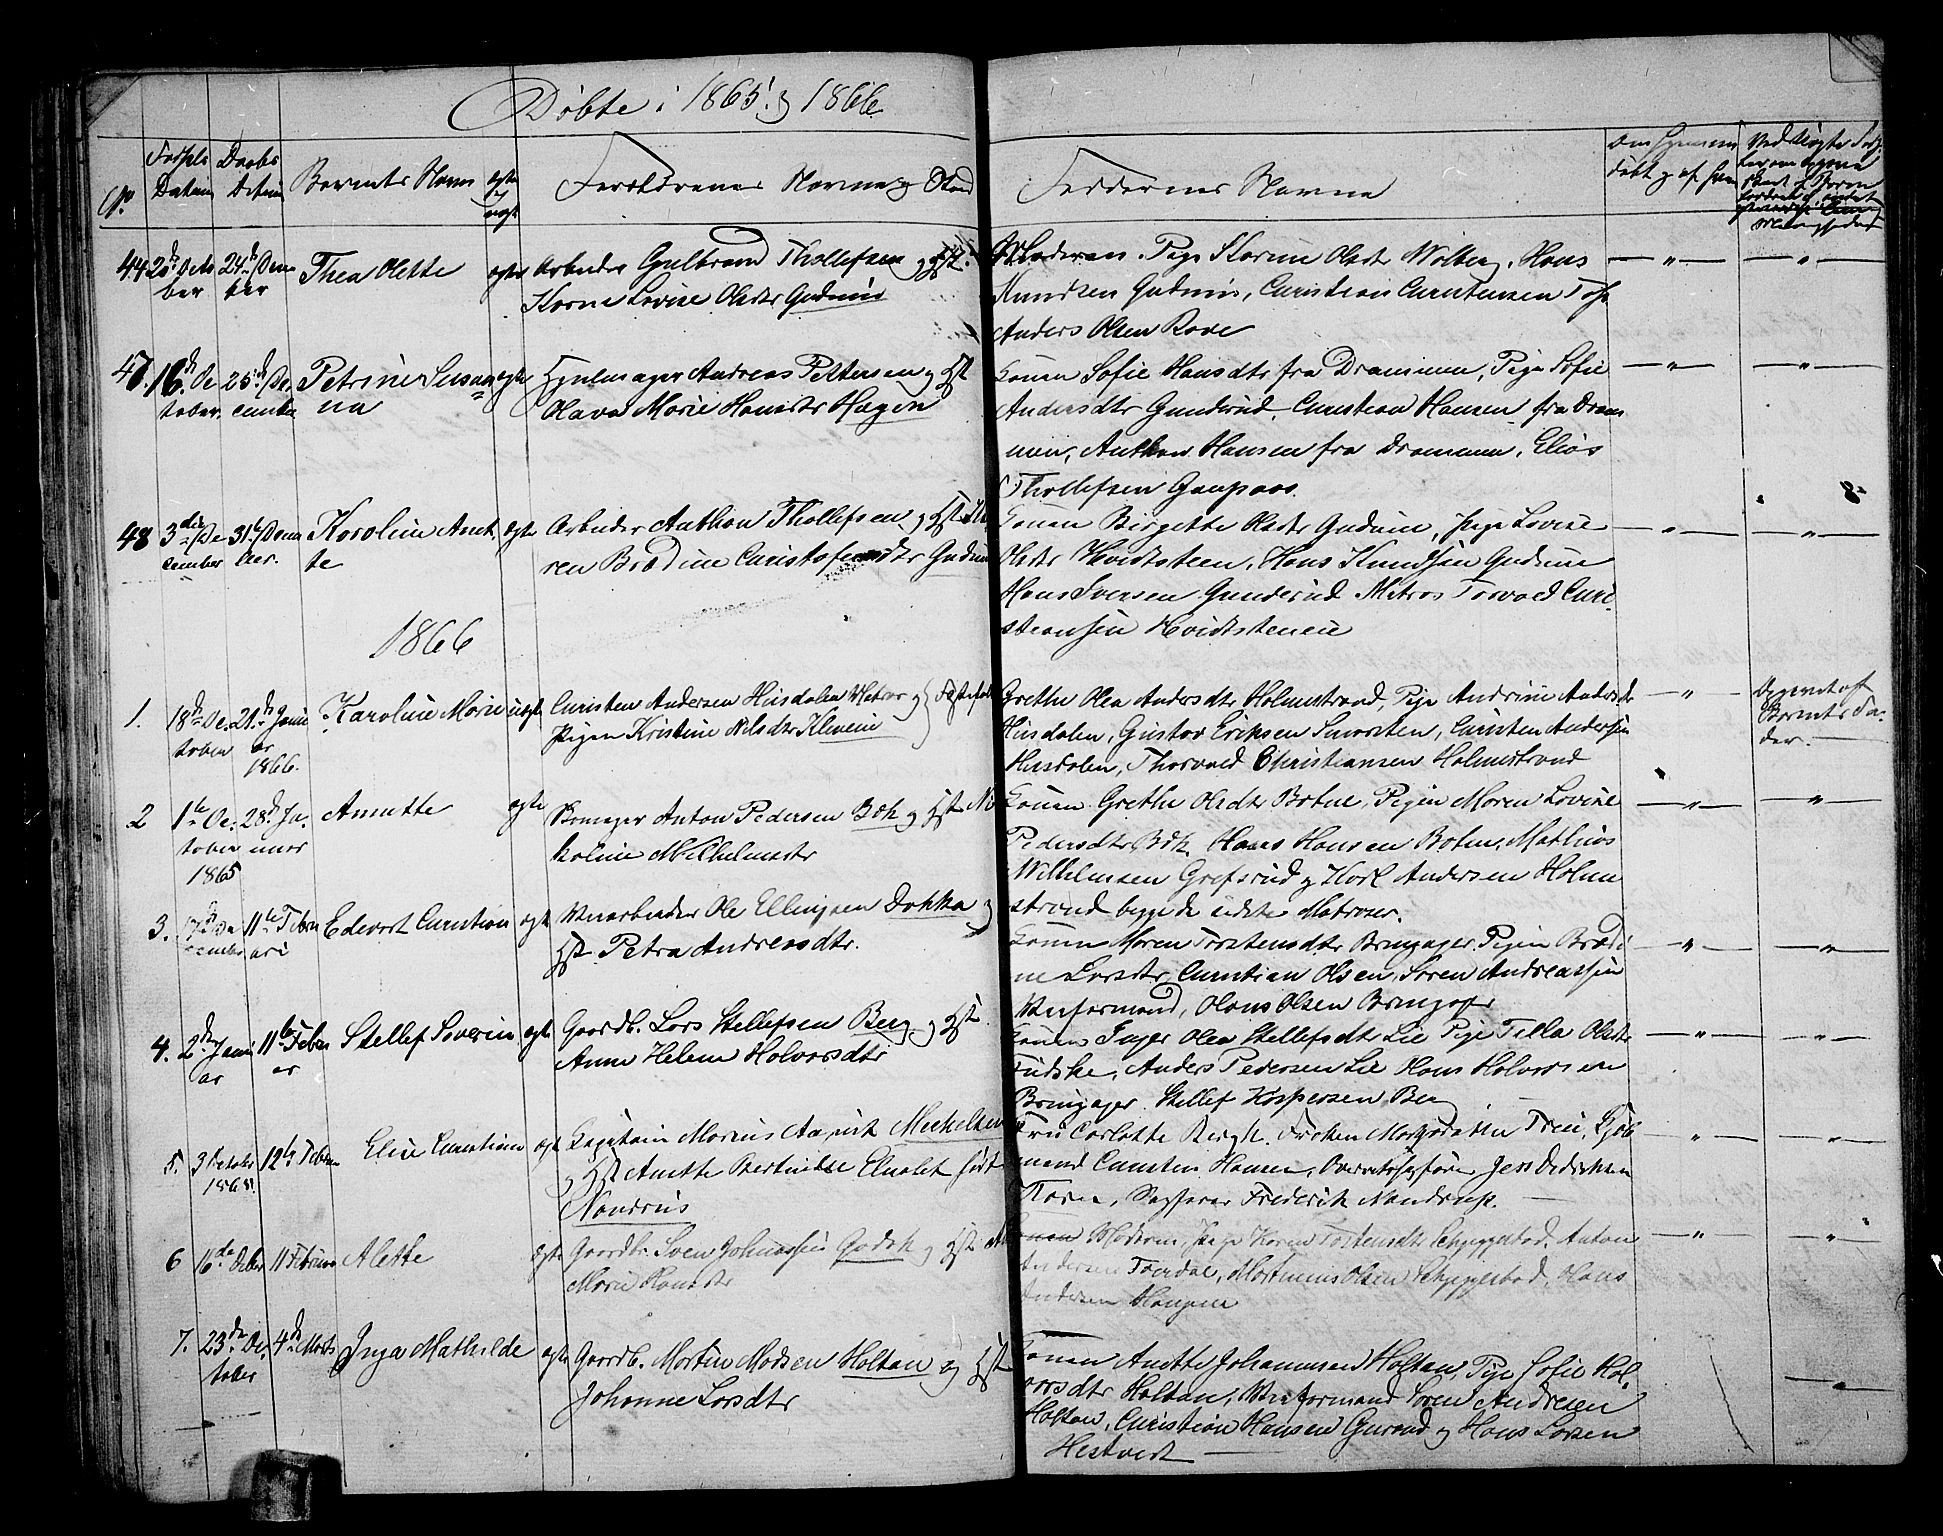 Døbte i 1865 og 1866
No
Fødsels Datum
Daabs Datum
Barnets Navn
ægte uægte
Forældrenes Navne og Stand
Faddernes Navne
Om hjemme døbt og af hvem
44 20de Octo ber 24de Decem ber Thea Olette ægte
Arbeider Gulbrand Thollefsen og Hst.
Karen Lovise Olsdtr Gudmin
Moderen. Pige Karine Olsdtr Wolberg, Hans
Knudsen Gudmin, Christian Christensen
Anders Olsen Rove
16de Oc tober 25de De cember Petrine Susan na ægte
Hjulmager Andreas Pettersen og Hst
Olava Marie Hansdtr Hagen
Konen Sofie Hansdtr fra Drammen, Pige Sofie
Andersdtr Gunderud, Christian Hansen fra Dram
men, Anthon Hansen fra Drammen, Elias
Thollefsen Gaupaas.
48 3die De cember 31te Decem ber. Karoline Anet te ægte
Arbeider Anthon Thollefsen og Hst
Bredine Christofersdtr Gudmin
Konen Birgette Olsdtr Gudmin, Pige Lovise
Olsdtr Hvidtsteen, Hans Knudsen Gudmin
Hans Iversen Gunderud Matros Torvald Chri
stiansen Hvidtstenene
1866
1. 18de Oc tober 21de Janu ar 1866. Karoline Marie uægte
Christen Andersen Husdalen Matros og
Pigen Kristine Nilsdtr Klevene
Grethe Olea Andersdtr Holmestrand, Pige Andrine Andersdtr
Husdalen, Gustav Eriksen Smorsten, Christen Andersen
Husdalen, Thorvald Christiansen Holmestrand
Barnets Fa der.
2 1te Oc tober 1865 28de Ja nuar Annette ægte
Skomager Anton Pedersen Bøk og Hst Ni
koline Wilhelmsdtr
Konen Grethe Olsdtr Botne, Pigen Maren Lovise
Pedersdtr Bøk, Hans Hansen Botne, Mathias
Wilhelmsen Grefsrud og Karl Andersen Holme
strand begge de sidste Matroser.
3. 17de De cember 11te Febru ari Edevart Christian ægte
Verarbeider Ole Ellingsen Dokka og
Hst Petra Andreasdtr.
Konen Maren Torstensdtr Bringager, Pigen Bredi
ne Larsdtr, Christian Olsen, Søren Andreassen
Verformand, Hans Olsen Bringager
4. 2de Janu ar 11te Febru ar Stellef Severin ægte
Gaardb. Lars Stellefsen Berg og Hst
Anne Helene Halvorsdtr
Konen Inger Olea Stellefsdtr Lie Pige Tilla Olsdtr
Fudske, Anders Pedersen Lie Hans Halvorsen
Bringager Stellef Kaspersen Berg
5. 3 October 1865. 12te Februar Elise Christiane ægte
Kapitain Marius Mechelsen
og Hst Anette født
Nandrus
Fru Carlotte Bergh. Frøken Frei, Kjøb
mand Carsten Hansen, Overretssagfører Jess Didriksen
Sagfører Frederik Nandrup.
6 16de Octbr 11 Februar Alette ægte
Gaardbr. Sven Johnassen Godsk og Hst
Marie Hansdtr
Konen Moderen, Pige Karen Tostensdtr Skjeggestad, Anton
Andersen Foerdal, Martinius Olsen Skjeggestad, Hans
Andersen Haugene
7. 23de Oc tober 4de Marts Inga Mathilde ægte
Gaardb. Martin Madsen Holtan og Hst
Johanne Larsdtr
Konen Anette Johannesen Holtan, Pige Sofie Hal
vorsdtr Holtan, Verformand Søren Andresen
Holtan, Christian Hansen Gurand og Hans Larsen
Hestvedt